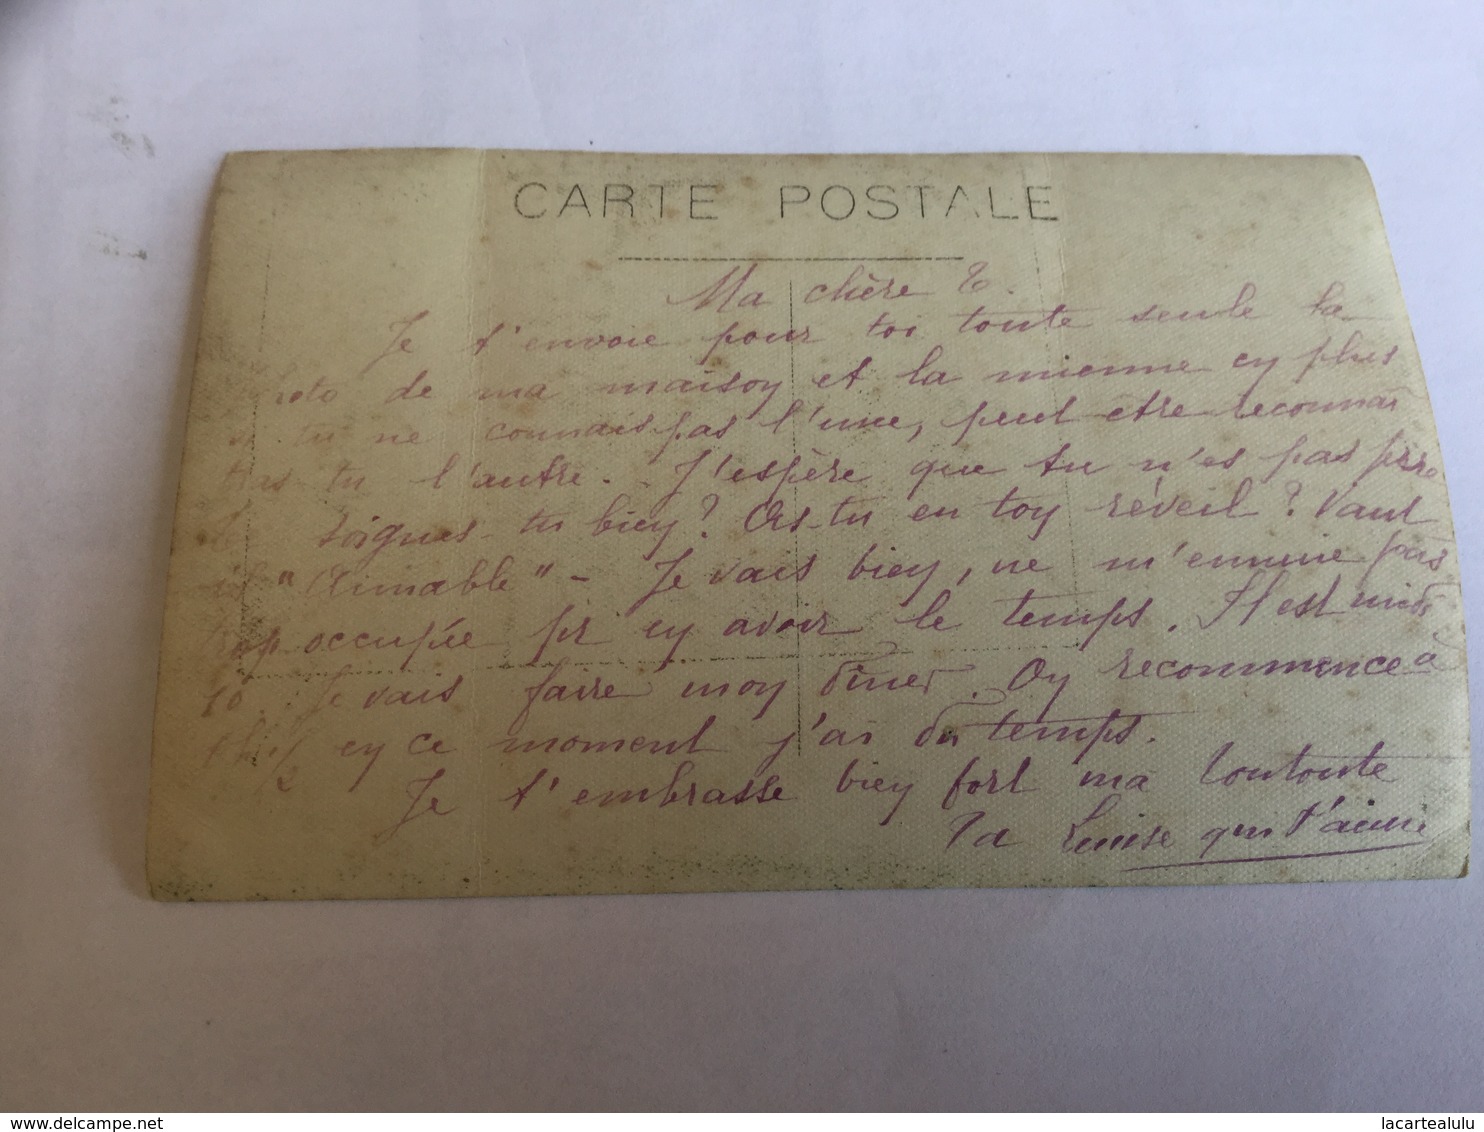 CARTE POSTALE
Ma chère T.
Je t'envoie pour toi toute seule la
photo de ma maison et la mienne en plus
si tu ne connais pas l'une, peut etre reconnaî
tras tu l'autre. J'espère que tu n'es pas
Soignes-tu bien? As-tu eu ton réveil? Vaut
il "Aimable" - Je vais bien, ne m'ennuie pas
trop occupée pr en avoir le temps. Il est midi
10. Je vais faire mon dîner. On recommence à
1h 1/2 en ce moment j'ai du temps.
Je t'embrasse bien fort ma toutoute
Ta Louise qui t'aime
lacartealulu